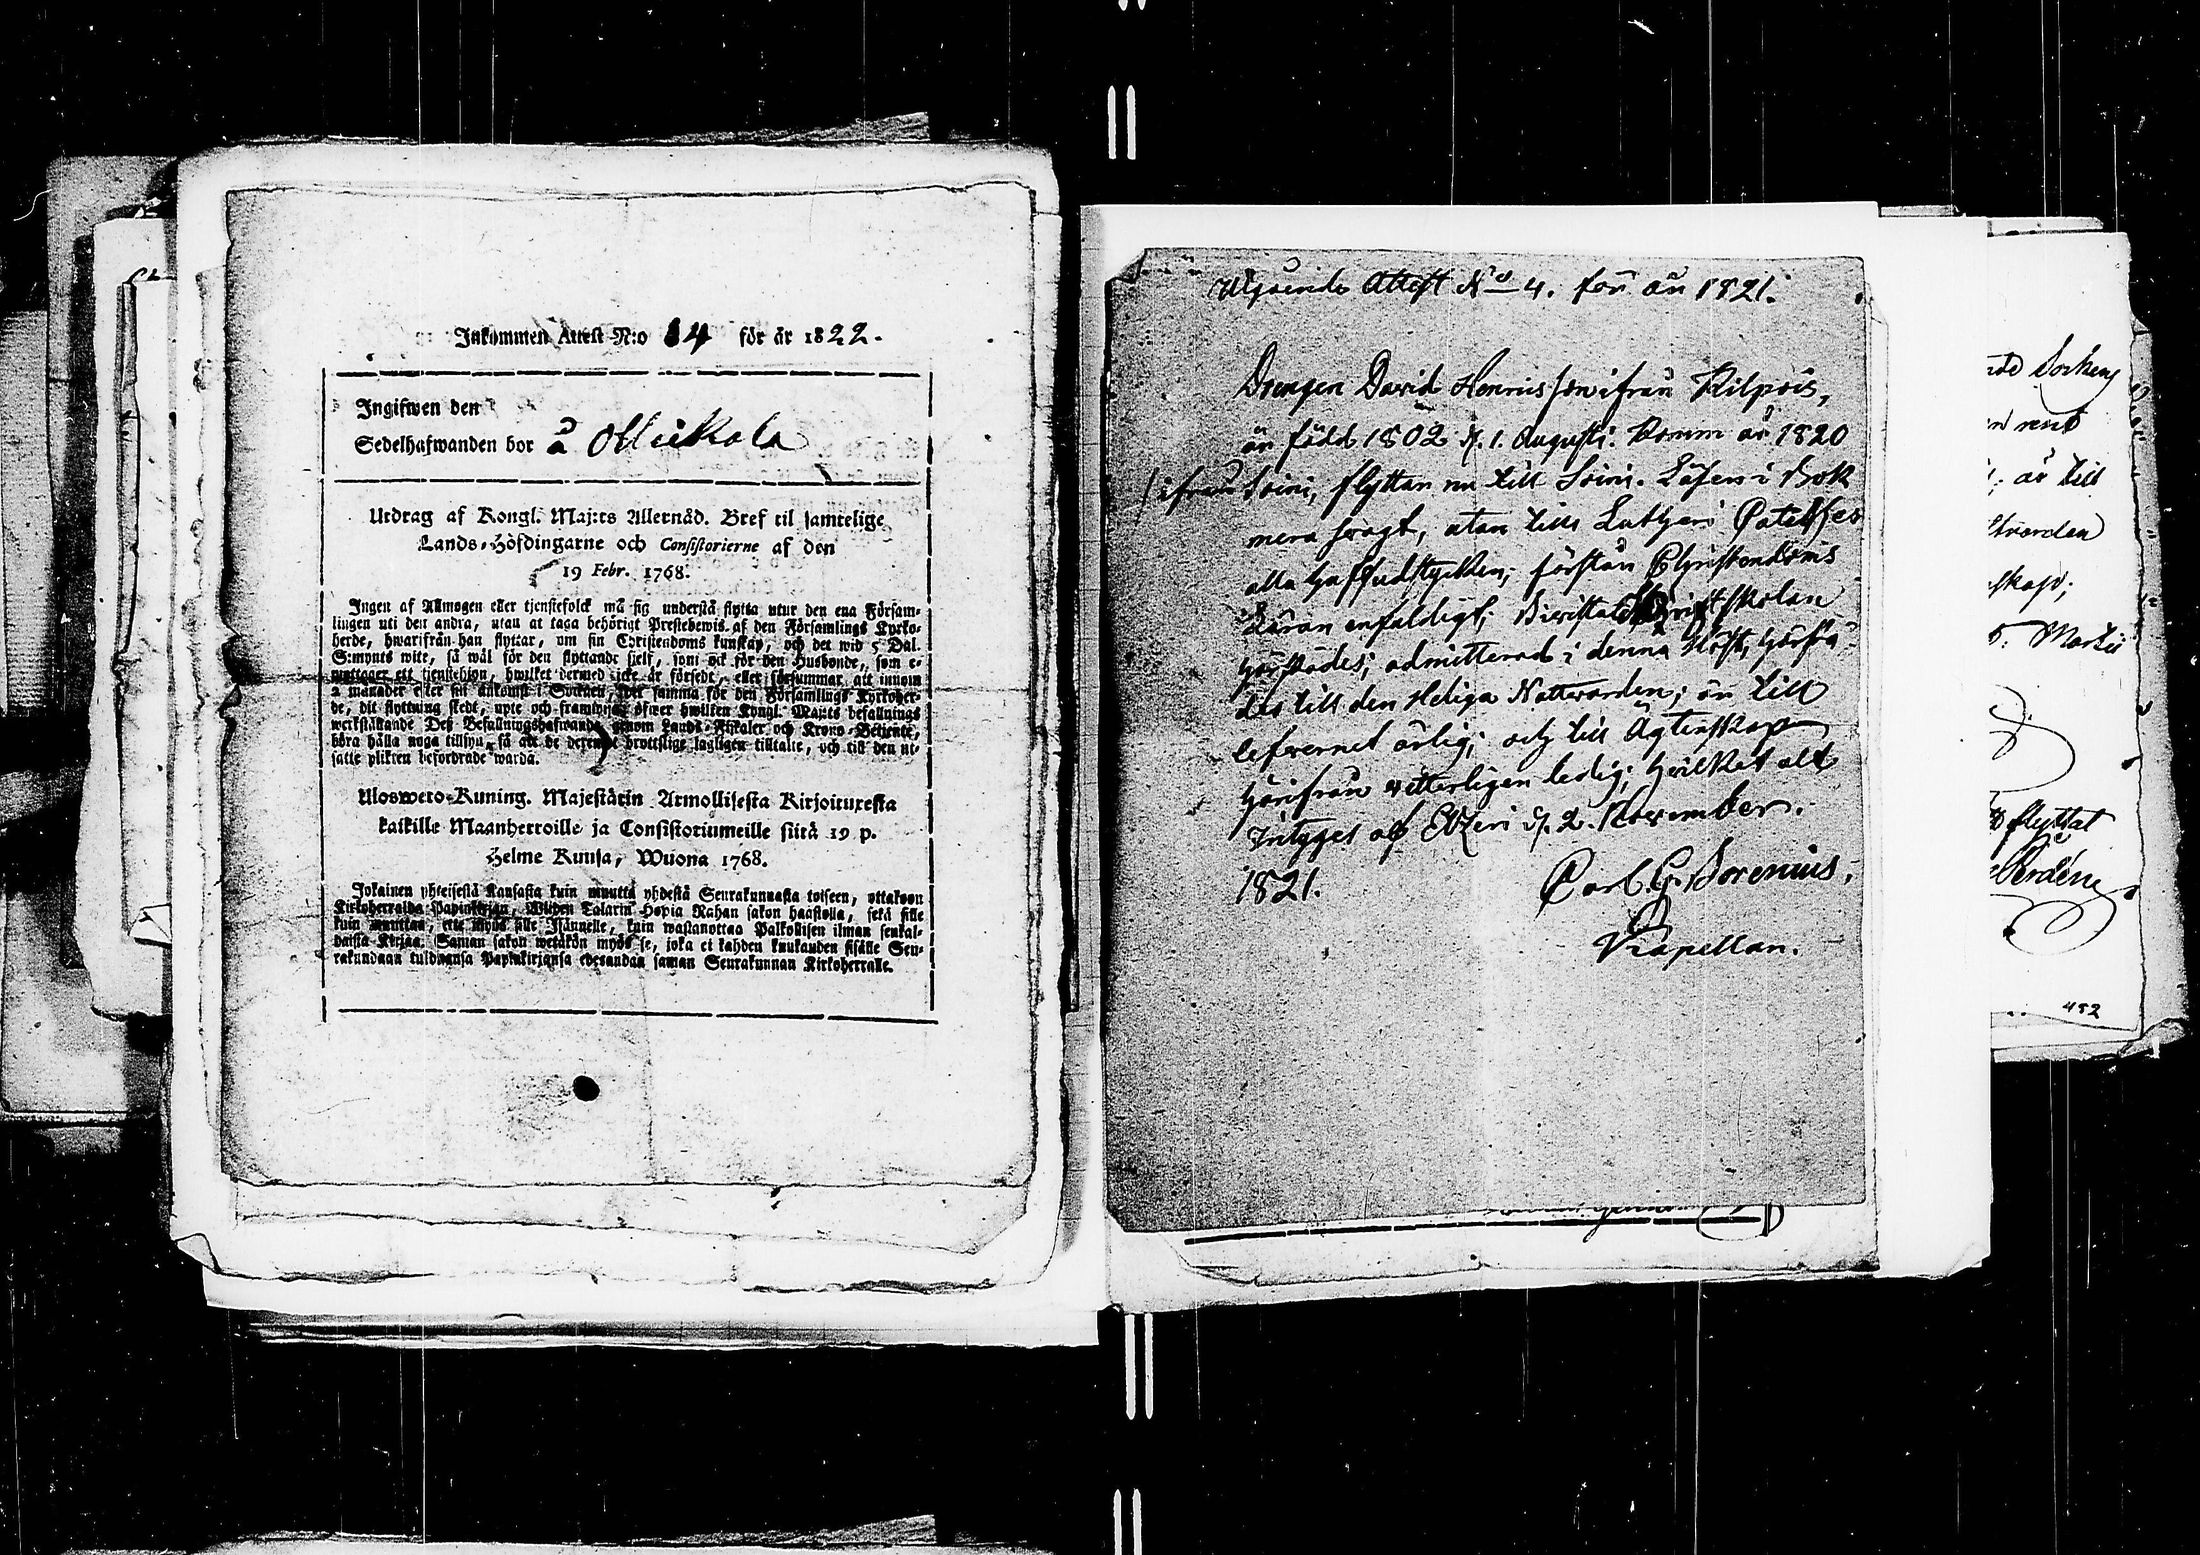 Inkommen Attest N:o 14 för år 1822.
Ingifwen den
Sedelhafwanden bor å Ollickala
Utdrag af Kongl. Maj:ts Allernåd. Bref til samtelige
Lands-Höfdingarne och Consistorierne af den
19 Febr. 1768.
Ingen af Allmogen eller tjenstefolck må sig understå flytta utur den ena Försam-
lingen uti den andra, utan at taga behörigt Prestebewis af den Församlings Kyrko-
herde, hwarifrån han flyttar, om sin Christendoms kunskap, och det wid 5 Dal.
S:mynts wite, så wäl för den flyttande sjelf, som ock för den Husbonde, som e-
mottager ett tjenstehjon, hwilket dermed icke är försedt, eller försummar att innom
2 månader efter sin ankomst i Socknen, det samma för den Församlings Kyrkoher-
de, dit flyttning skedt, upte och framwisa; öfwer hwilken Kongl. Maj:ts befallnings
werkställande Deß Befallningshafwande genom Lands-Fiskaler och Krono-Betjente,
böra hålla noga tillsyn, så att de deremot brottslige lagligen tilltalte, och till den ut-
satte plikten befordrade warda.
Uloswero-Kuning. Majestätin Armollisesta Kirjoituxesta
kaikille Maanherroille ja Consistoriumeille siitä 19 p.
Helme Kuusa, Wuona 1768.
Jokainen yhteisestä Kansasta kuin muutta yhdestä Seurakunnasta toiseen, ottakoon
Kirkoherralda Papinkirjan, Wijden Talarin Hopia Rahan sakon haastolla, sekä sille
kuin muuttaa, että myös sille Isännelle, kuin wastanottaa Palkollisen ilman senkal-
daista Kirjaa. Saman sakon wetäkön myös se, joka ei kahden kuukauden sisälle Seu-
rakundaan tulduansa Papinkirjansa edesanda saman Seurakunnan Kirkoherralle.
Utgående Attest No 4. för år 1821.
Drengen David Henricsson ifrån Kilpois,
är född 1802 d. 1. Augusti. Komm år 1820
ifrån Soini, flyttar nu till Soini. Läsen i Bok
mera swagt, utan till Lutheri Cateches
alla hufvudstycken; förstår Christendoms
läran enfaldigt; Bivistat Skriftskolan
härstädes; admitterad i denna Höst, härstä-
des till den Heliga Nattvarden; är till
lefvernet ärlig; och till Ägtenskap
härifrån vetterligen ledig; hvilket alt
Intyges af Etzeri d. 2. November.
1821.
Carl G. Borenius,
Kapellan.
Sockens
är till
skap;
Martii
flyttat
452